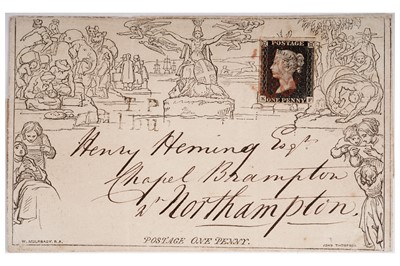 POSTAGE
ONE PENNY
Henry Heming Esqr
Chapel Brampton
Nr Northampton.
POSTAGE ONE PENNY.
W. MULREADY. R.A.
JOHN THOMPSON